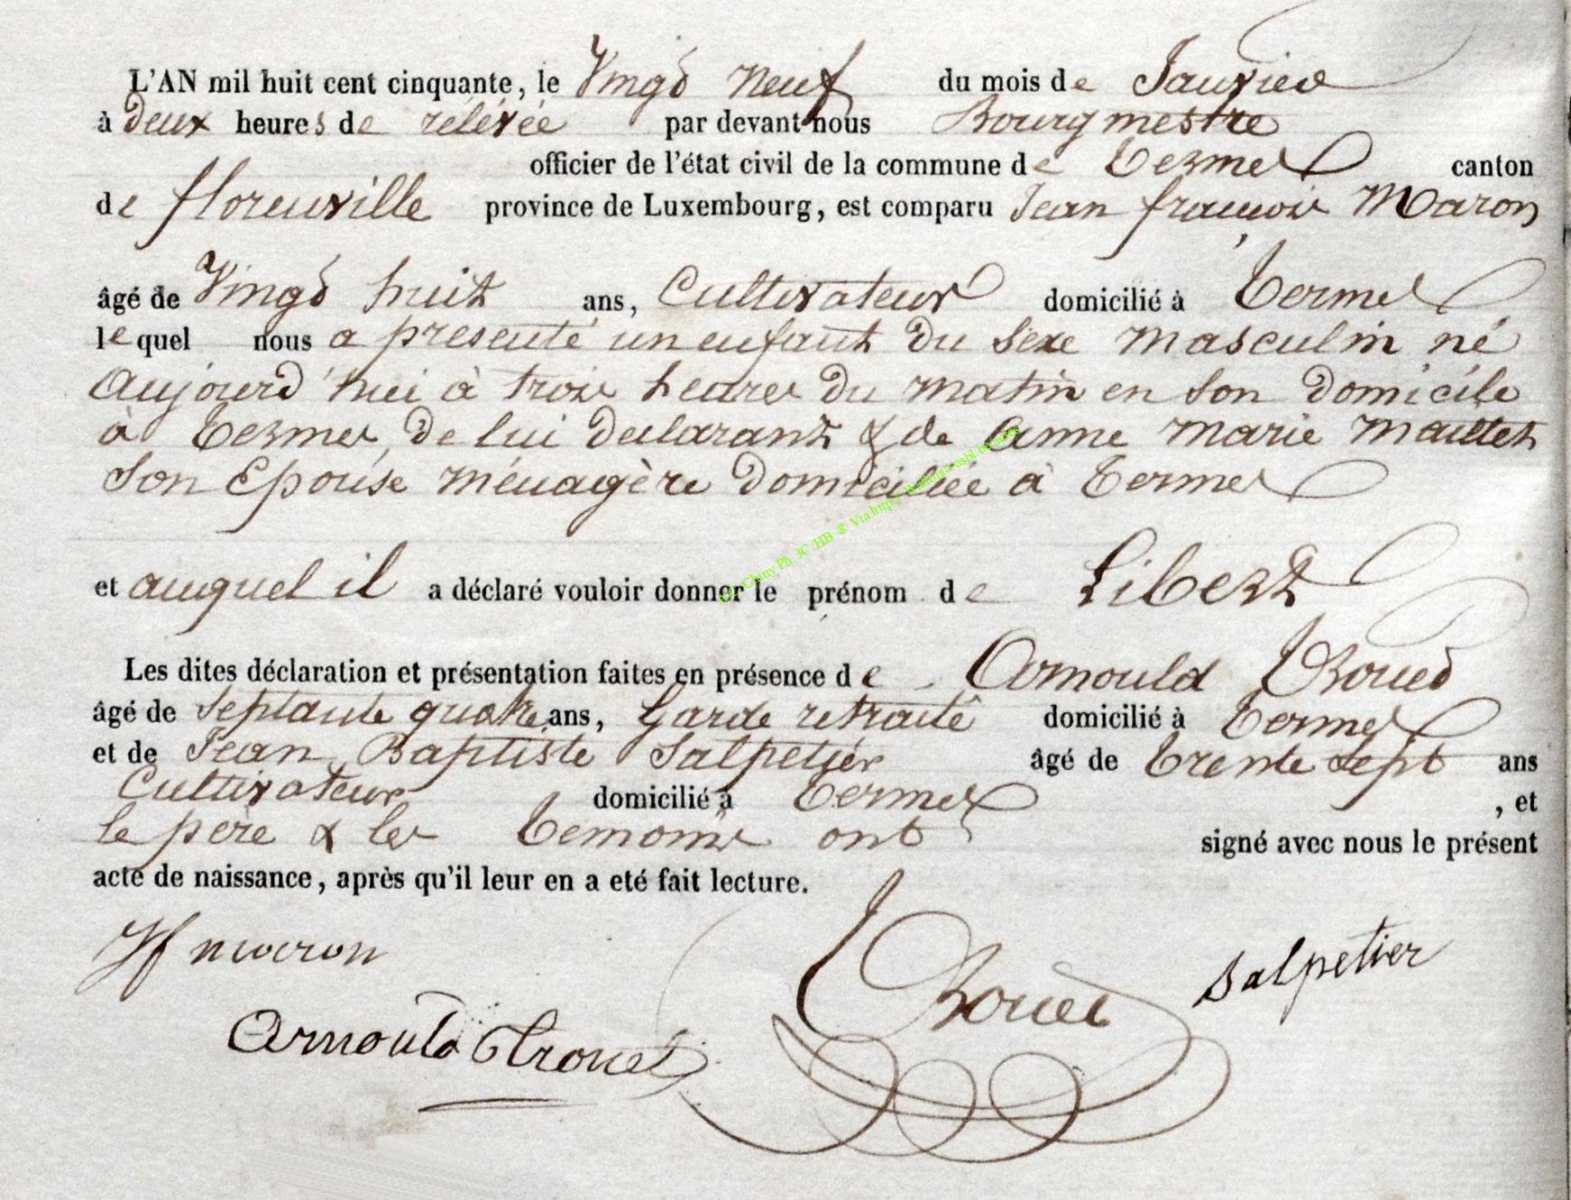 L'AN mil huit cent cinquante, le Vingt neuf du mois de Janvier
à deux heures de rélévée par devant nous Bourgmestre
officier de l'état civil de la commune de Termes canton
de florenville province de Luxembourg, est comparu Jean françois Maron
âgé de Vingt huit ans, Cultivateur domicilié à Termes
lequel nous a présenté un enfant du sexe masculin né
aujourd'hui à trois heures du matin en son domicile
à Termes, de lui declarant & de anne marie maultet
son Epouse ménagère domiciliée à Termes
et auquel il a déclaré vouloir donner le prénom de Libert
Les dites déclaration et présentation faites en présence de Arnould
âgé de septante quatre ans, Garde retraité domicilié à Termes
et de Jean Baptiste Salpetier âgé de trente sept ans
Cultivateur domicilié à Termes , et
le père & les temoins ont signé avec nous le présent
acte de naissance, après qu'il leur en a eté fait lecture.
maron
Salpetier
Arnould